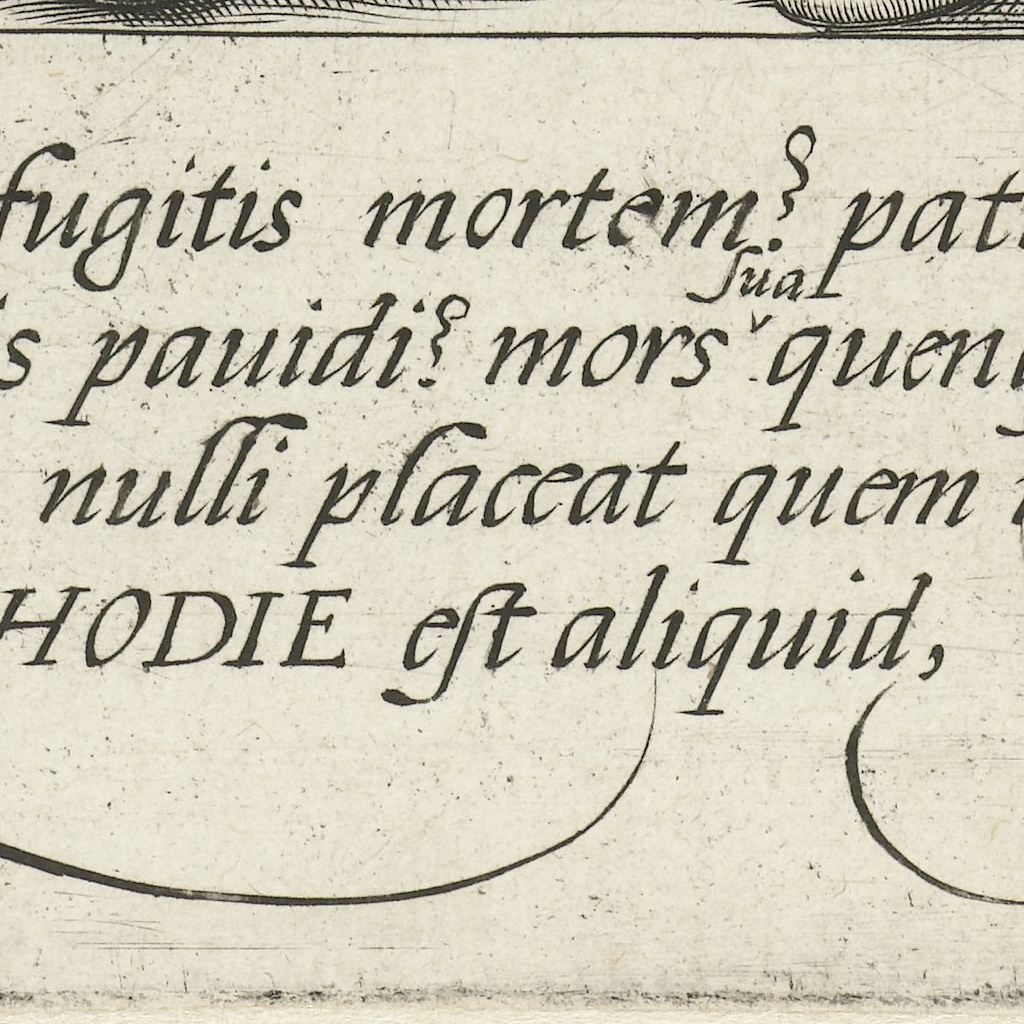 fugitis mortem? pat
s pauidi? mors sua quen
nulli placeat quem
HODIE est aliquid,